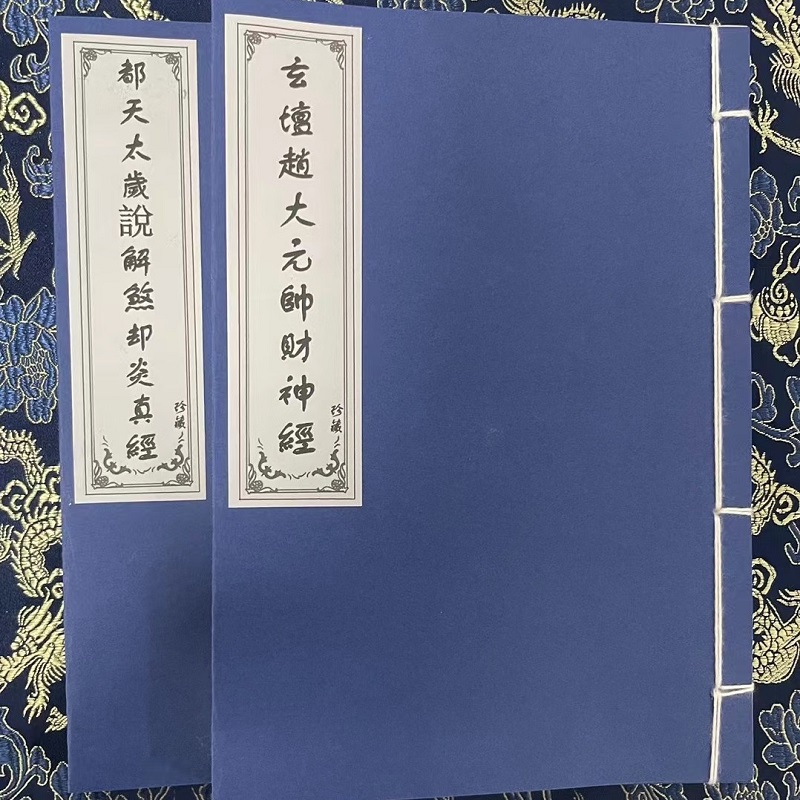 玄壇趙大元帥財神經
珍藏
都天太歲說解煞却炎真經
珍藏